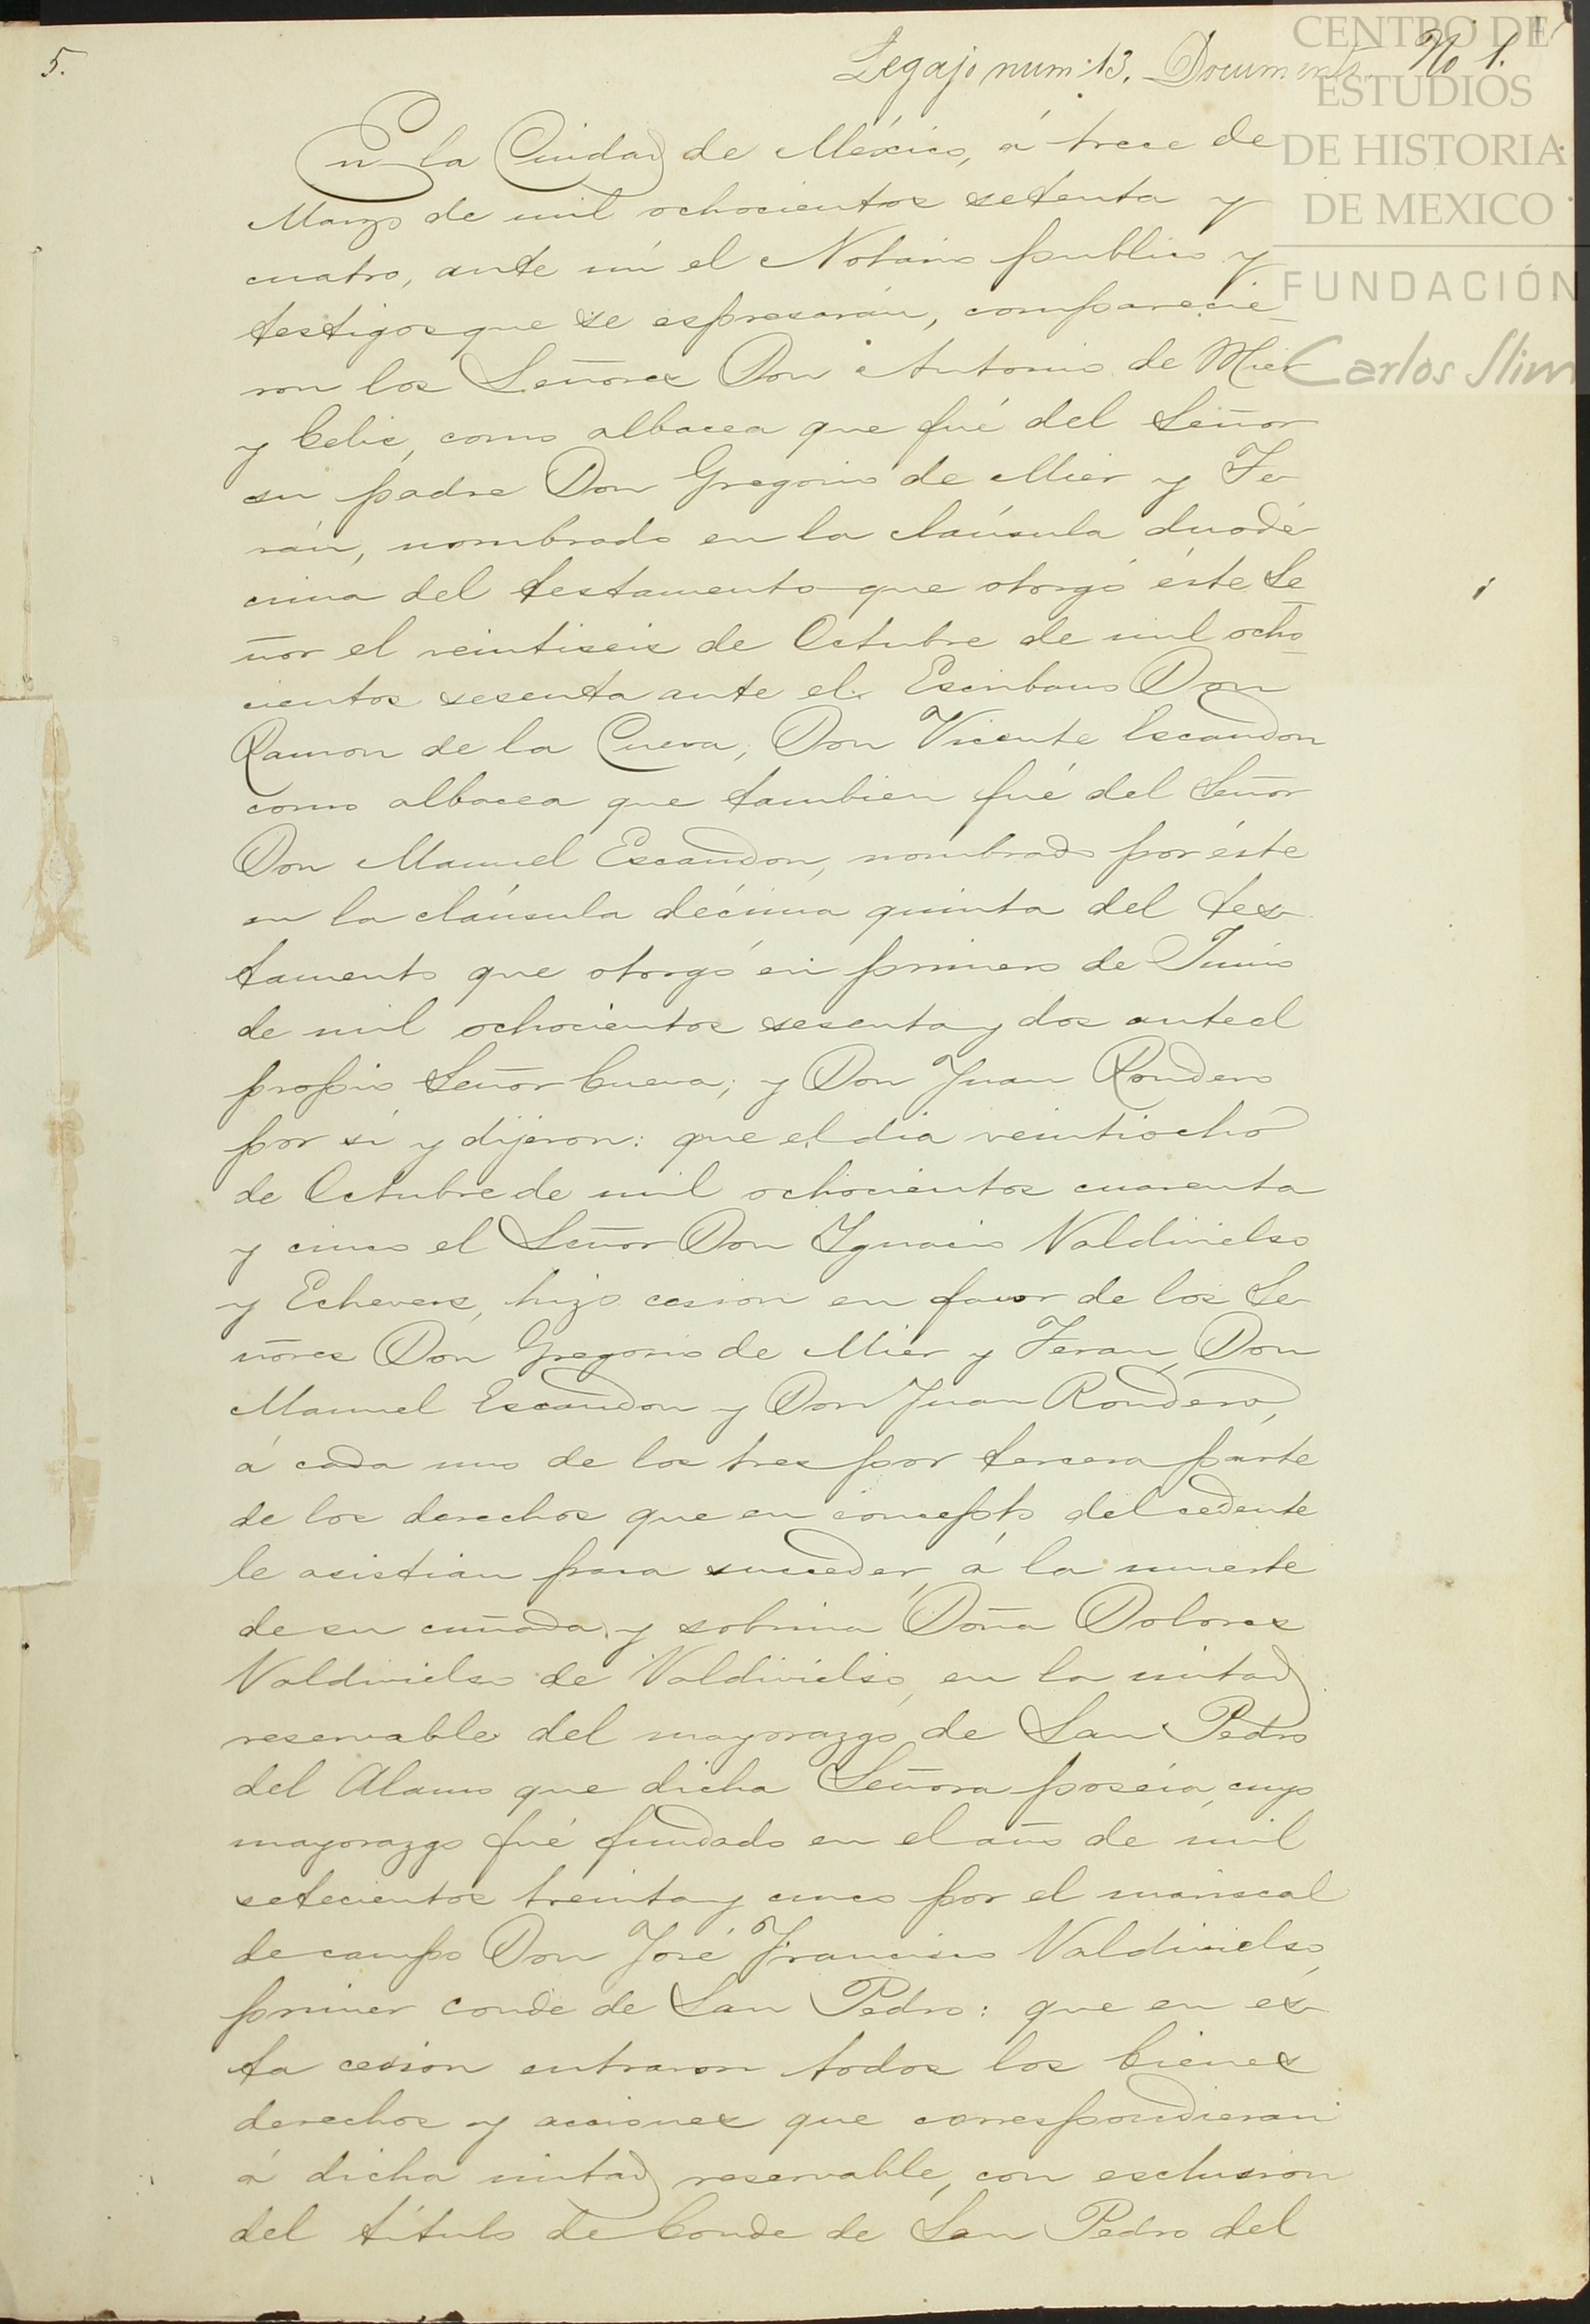 5.
Legajo num: 13. Documento No 1.
CENTRO DE
ESTUDIOS
DE HISTORIA
DE MEXICO
FUNDACIÓN
Carlos Slim
En la Ciudad de México, á trece de
Marzo de mil ochocientos setenta y
cuatro, ante mí el Notario publico y
testigos que se espresarán, comparecie-
ron los Señores Don Antonio de Mier
y Celis, como albacea que fué del Señor
su padre Don Gregorio de Mier y Te-
rán, nombrado en la claúsula duodé-
cima del testamento que otorgó éste Se-
ñor el veintiseis de Octubre de mil ocho-
cientos sesenta ante el Escribano Don
Ramon de la Cueva; Don Vicente Escandon
como albacea que tambien fué del Señor
Don Manuel Escandon, nombrado por éste
en la claúsula décima quinta del tes-
tamento que otorgó en primero de Junio
de mil ochocientos sesenta y dos ante el
propio Señor Cueva; y Don Juan Rondero
por sí y dijeron: que el dia veintiocho
de Octubre de mil ochocientos cuarenta
y cinco el Señor Don Ygnacio Valdivielso
y Echevers, hizo cesion en favor de los Se-
ñores Don Gregorio de Mier y Teran, Don
Manuel Escandon y Don Juan Rondero,
á cada uno de los tres por tercera parte
de los derechos que en concepto del cedente
le asistian para succeder, á la muerte
de su cuñada y sobrina Doña Dolores
Valdivielso de Valdivielso, en la mitad
reservable del mayorazgo de San Pedro
del Alamo que dicha Señora poseía, cuyo
mayorazgo fué fundado en el año de mil
setecientos treinta y cinco por el mariscal
de campo Don José Francisco Valdivielso,
primer conde de San Pedro: que en és-
ta cesion entraron todos los bienes
derechos y acciones que correspondieran
á dicha mitad reservable, con esclusion
del título de Conde de San Pedro del